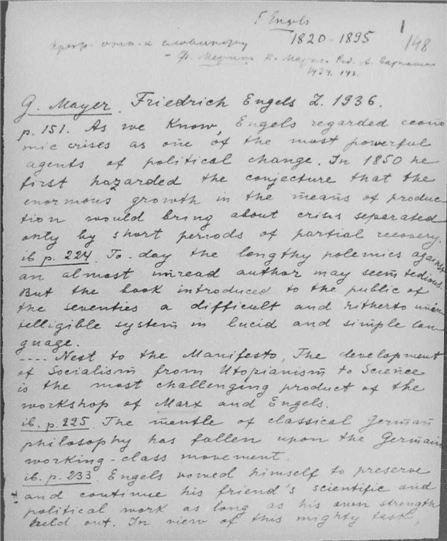 F. Engels
1820-1895
1
148
G. Mayer, Friedrich Engels L. 1936.
p. 151. As we know, Engels regarded econo
mic crises as one of the most powerful
agents of political change. In 1850 he
first hazarded the conjecture that the
enormous growth in the means of produc
tion would bring about crises separated
only by short periods of partial recovery.
ib. p. 224. To-day the lengthy polemics against
an almost unread author may seem tedious.
But the book introduced to the public of
the seventies a difficult and hitherto unin
telligible system in lucid and simple lan
guage.
.... Next to the Manifesto, The development
of Socialism from Utopianism to Science
is the most challenging product of the
workshop of Marx and Engels.
ib. p. 225 The mantle of classical German
philosophy has fallen upon the German
working-class movement.
ib. p. 233 Engels vowed himself to preserve
and continue his friend's scientific and
political work as long as his own strength
held out. In view of this mighty task,